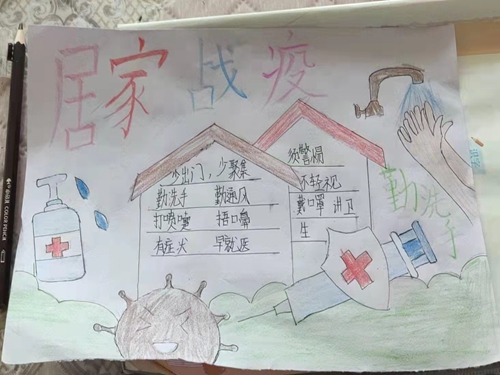 居家战疫
少出门，少聚集
勤洗手 勤通风
打喷嚏 捂口鼻
有症状 早就医
须警惕
不轻视
戴口罩 讲卫
生
勤洗手
COLOR PENCIL